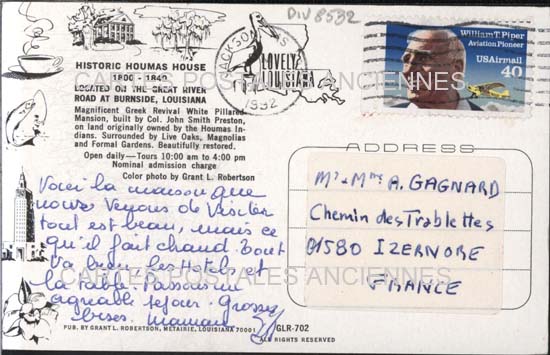 DIV 8532
HISTORIC HOUMAS HOUSE
1800 - 1840
LOCATED ON THE GREAT RIVER
ROAD AT BURNSIDE, LOUISIANA
Magnificent Greek Revival White Pillared
Mansion, built by Col. John Smith Preston,
on land originally owned by the Houmas In-
dians. Surrounded by Live Oaks, Magnolias
and Formal Gardens. Beautifully restored.
Open daily—Tours 10:00 am to 4:00 pm
Nominal admission charge
Color photo by Grant L. Robertson
LOVELY
LOUISIANA
JACKSON
1992
William T. Piper
Aviation Pioneer
USAirmail
40
CARTES POSTALES ANCIENNES
Voici la maison que
nous venons de visiter
tout est beau, mais ce
qu'il fait chaud. Tout
va bien les Hotels et
la table. Passons un
agréable séjour. Grosses
bises. Maman
ADDRESS
Mr & Mme A. GAGNARD
Chemin des Trablettes
01580 IZERNORE
FRANCE
CARTES POSTALES ANCIENNES
PUB. BY GRANT L. ROBERTSON, METAIRIE, LOUISIANA 70001
GLR-702
ALL RIGHTS RESERVED